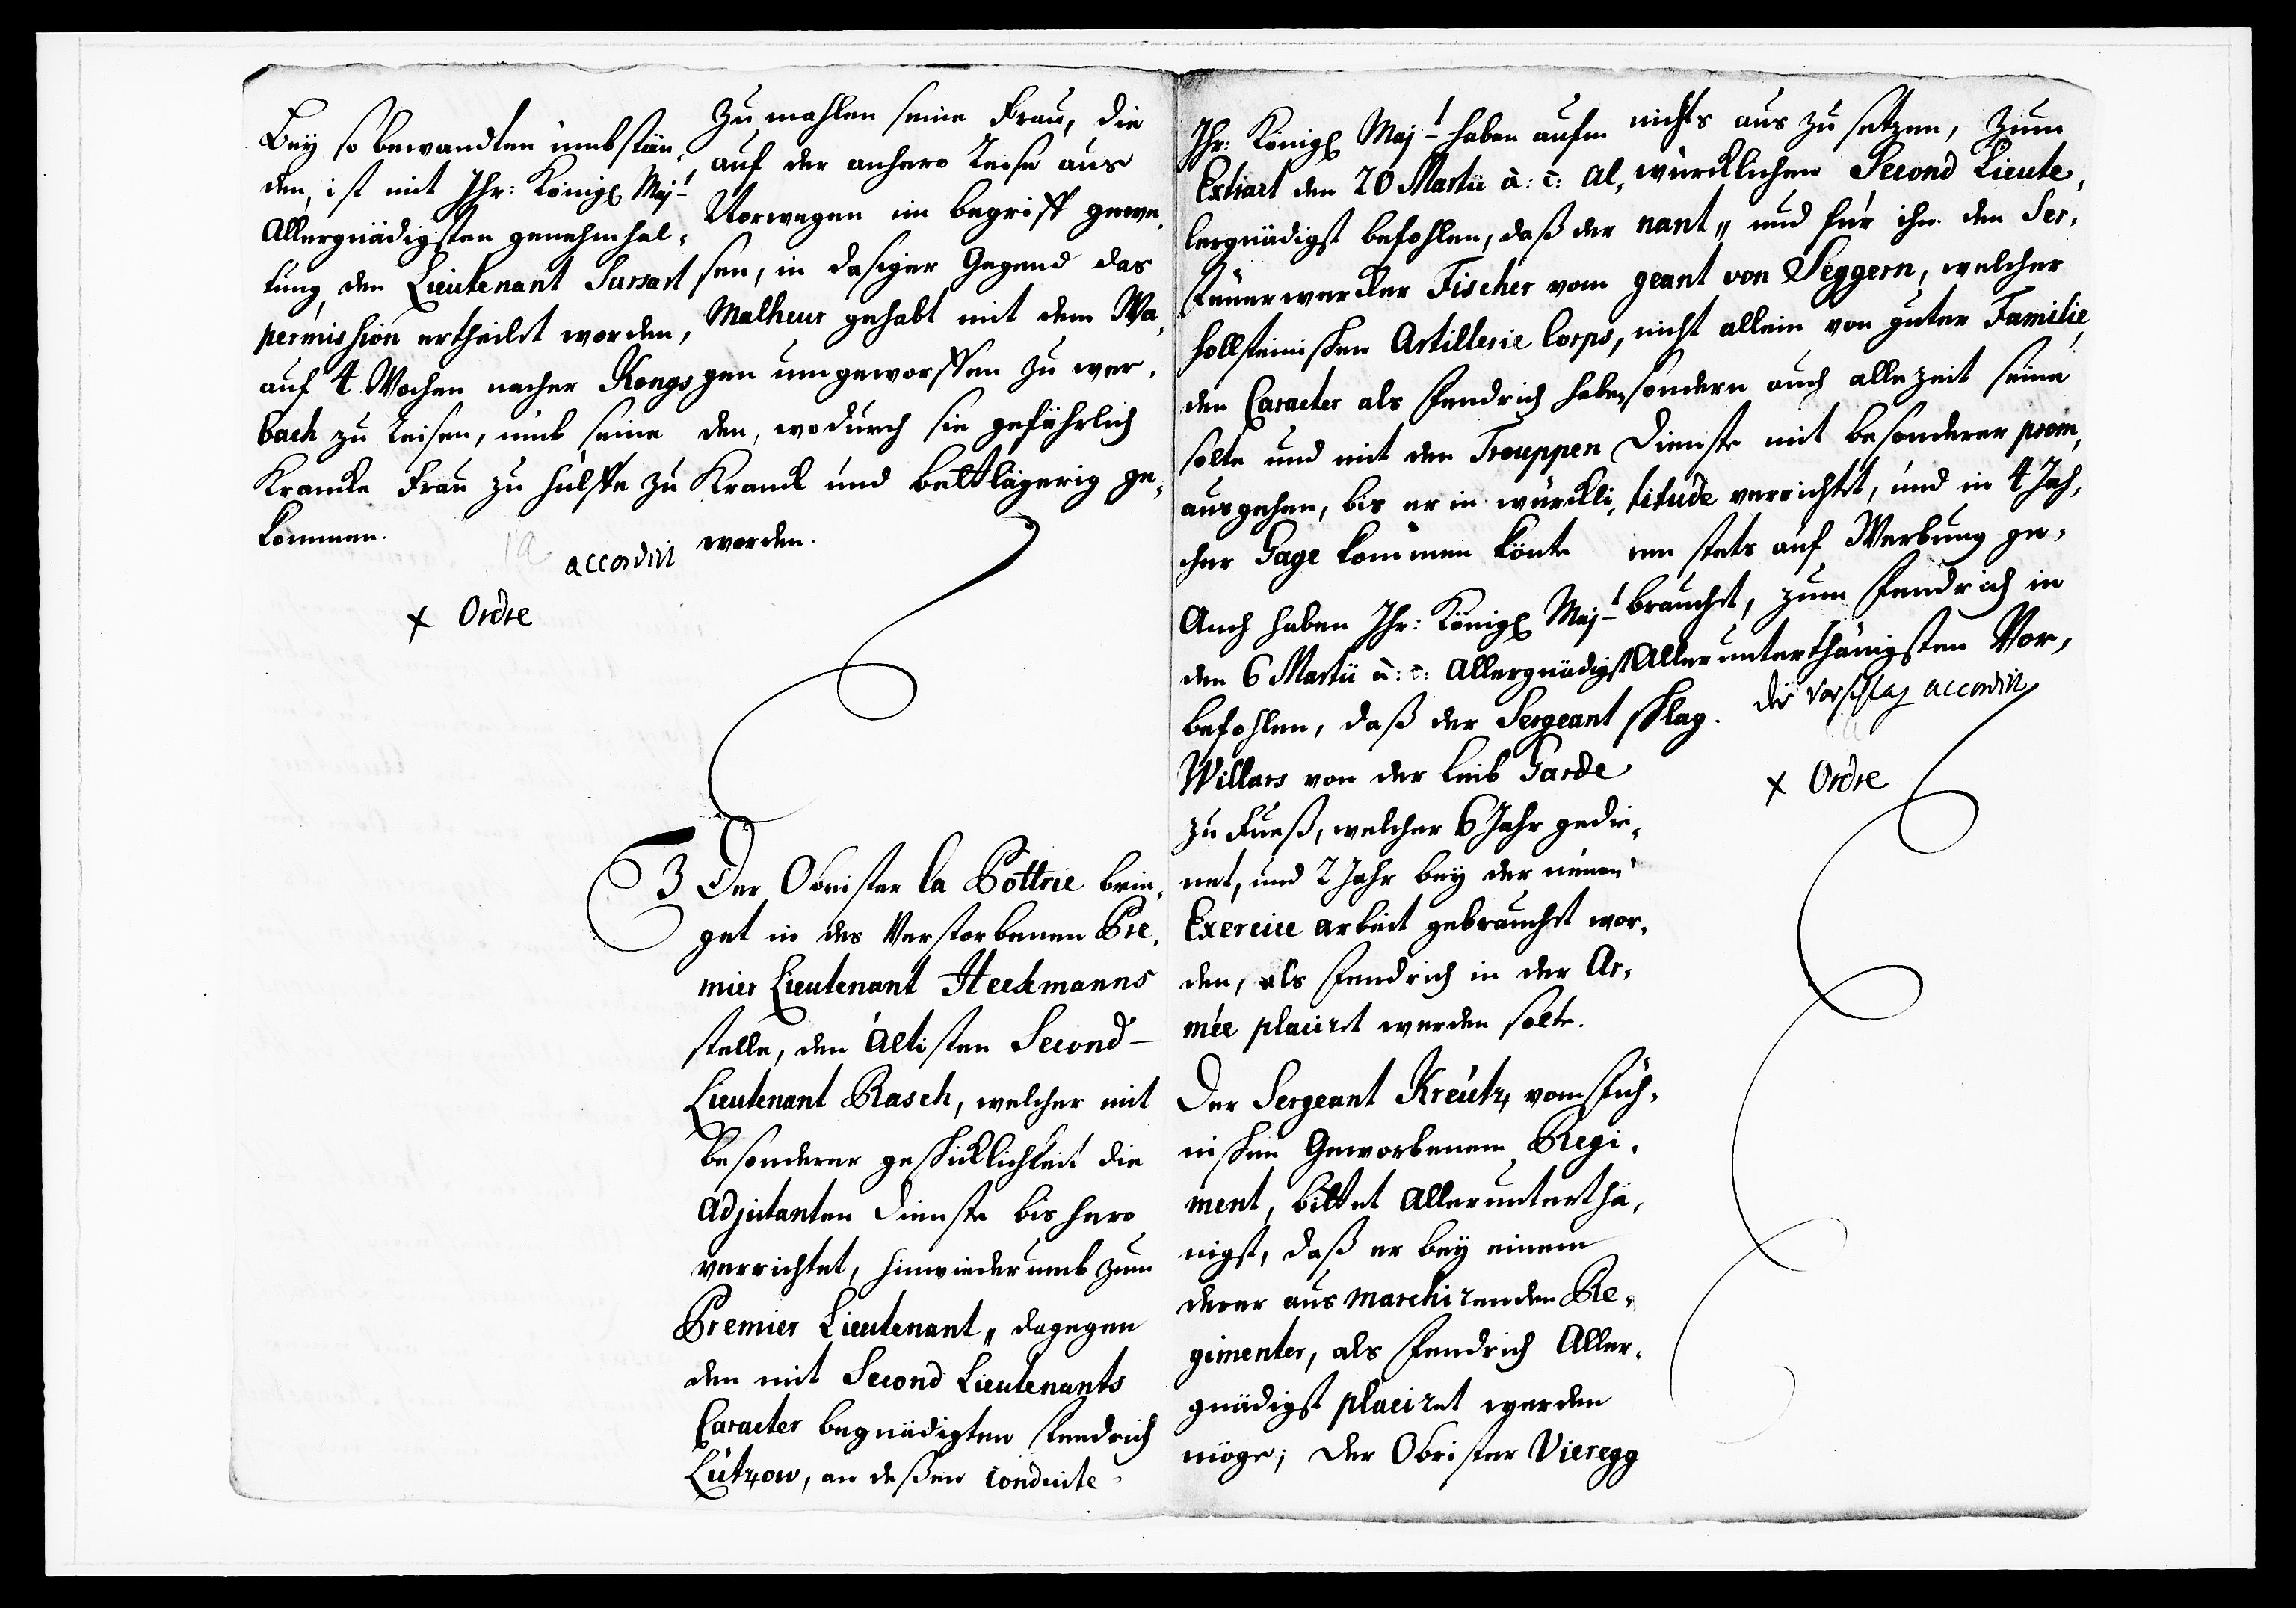 Bey so bewandten umbstän,
den, ist mit Ihr: Königl Maj:t
Allergnädigsten genehmhal,
tung, den Lieutenant Sarsart
permission ertheilet worden,
auf 4 Wochen nacher Kongs
bach zu reisen, umb seine
Krancke Frau zu hülffe zu
kommen.
accordirt
x Ordre
Zu mahlen seine Frau, die
auf der anhero reise aus
Norwegen im begriff gewe,
sen, in dasiger Gegend das
Malheur gehabt mit dem Wa,
gen umgeworffen zu wer,
den, wodurch sie gefährlich
Kranck und bettlägerig ge,
worden.
3 Der Obrister la Pottrie brin,
get in des Verstorbenen Pre,
mier Lieutenant Heckmanns
stelle, den Ältisten Second-
Lieutenant Rasch, welcher mit
besonderer geschicklichkeit die
Adjutanten dienste bishero
verrichtet, hinwiederumb zum
Premier Lieutenant „ dagegen
den mit Second Lieutenants
Caracter begnädigten Fendrich
Lützow, an deßen conduite
Ihr: Königl Maj:t haben aufm
Extract den 20 Martii a: c: al,
lergnädigst befohlen, daß der
feuerwercker Fischer vom
hollsteinischen Artillerie Corps,
den Caracter als Fendrich haben
solte und mit den Trouppen
ausgehen, bis er in würckli,
cher Gage kommen könte
Auch haben Ihr: Königl Maj:t
den 6 Martii a: c: Allergnädigst
befohlen, daß der Sergeant
Willars von der Leib Garde
zu Fueß, welcher 6 Jahr gedie,
net, und 2 Jahr bey der neuen
Exercice arbeit gebraucht wor,
den, als Fendrich in der Ar,
mée placiret werden solte.
Der Sergeant Kreutz, vom Füh,
nischen Geworbenem Regi,
ment, bittet Allerunterthä,
nigst, daß er bey einem
derer ausmarchirenden Re,
gimenter, als Fendrich Aller,
gnädigst placiret werden
möge; der Obrister Vieregg
nichts aus zu setzen, zum
würcklichen Second Lieute,
nant „ und für ihn den Ser,
geant von Seggern, welcher
nicht allein von guter Familie,
sondern auch allezeit seine
Dienste mit besonderer prom,
titude verrichtet, und in 4 Jah,
ren stets auf Werbung ge,
braucht, zum Fendrich in
Allerunterthänigsten Vor,
schlag.
der Vorschlag accordirt
x Ordre